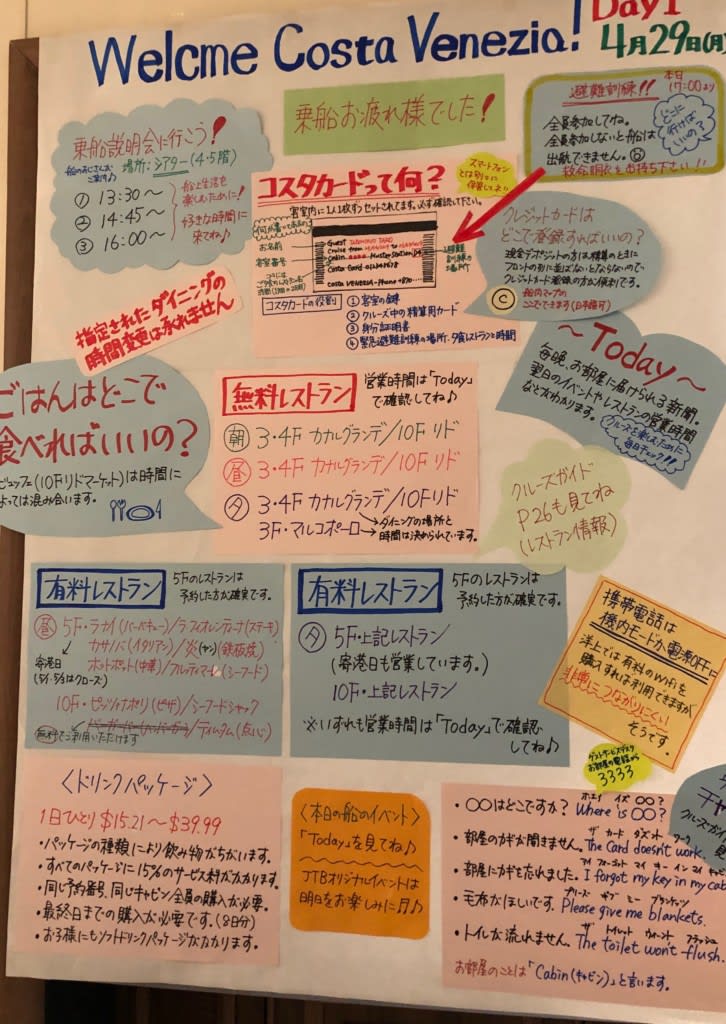 Welcme Costa Venezia!
Day1
4月29日(月)
乗船お疲れ様でした!
乗船説明会に行こう!
船のあじさんがご案内♪
場所:シアター(4・5階)
① 13:30〜
② 14:45〜
③ 16:00〜
船上生活を
楽しむために!
好きな時間に
来てね♪
避難訓練!!
本日
17:00より
全員参加してね。
全員参加しないと船は
出航できません。
救命胴衣もお持ち下さい!!
どこに
行けば
いいの?
スマートフォン
とは別々に
保管してネ!!
コスタカードって何?
客室内に1人1枚ずつセットされてます。必ず確認して下さい。
お名前
客室番号
Costa Card
Costa Venezia-Phone
避難
訓練
の場所
コスタカードの役割
① 客室の鍵
② クルーズ中の精算用カード
③ 身分証明書
④ 緊急避難訓練の場所、夕食レストランと時間
クレジットカードは
どこで登録すればいいの?
現金デポジットの方は、精算のときに
フロントの列に並ばないとならないので、
クレジットカード登録の方が便利です。
C
船内マップの
ここでできます(日本語可)
指定されたダイニングの
時間変更は承れません
〜Today〜
毎晩、お部屋に届けられる新聞。
翌日のイベントやレストランの営業時間
などがわかります。
クルーズを楽しむために
毎日チェック!!
ごはんはどこで
食べればいいの?
ビュッフェ(10Fリドマーケット)は時間に
よっては混み合います。
無料レストラン
営業時間は「Today」
で確認してね♪
朝 3・4F カナルグランデ/10F リド
昼 3・4F カナルグランデ/10F リド
夕 3・4F カナルグランデ/10F リド
3F・マルコポーロ
ダイニングの場所と
時間は決められています。
クルーズガイド
P26も見てね
(レストラン情報)
有料レストラン
5Fのレストランは
予約した方が確実です。
昼 5F・ラナイ(バーベキュー)/ラフィオレンティーナ(ステーキ)
カサノバ(イタリアン)/炎(ヤン)(鉄板焼)
ホットポット(中華)/フルッティマーレ(シーフード)
寄港日
(5/1・5/3はクローズ)
10F・ピッツァナポリ(ピザ)/シーフードシャック
バーガーバー(ハンバーガー)/ティムタム(点心)
無料でご利用いただけます
有料レストラン
5Fのレストランは
予約した方が確実です。
夕 5F・上記レストラン
(寄港日も営業しています。)
10F・上記レストラン
※いずれも営業時間は「Today」で確認
してね♪
携帯電話は
機内モードか電源OFFに
洋上では有料のWiFiを
購入すれば利用できますが、
非常につながりにくい
そうです。
ゲストサービスデスク
お部屋の電話から
3333
〈ドリンクパッケージ〉
1日ひとり $15.21〜$39.99
・パッケージの種類により飲み物がちがいます。
・すべてのパッケージに15%のサービス料がかかります。
・同じ予約番号、同じキャビン全員の購入が必要。
・最終日までの購入が必要です。(8日分)
・お子様にもソフトドリンクパッケージがかかります。
〈本日の船のイベント〉
「Today」を見てね♪
JTBオリジナルイベントは
明日をお楽しみに♬♪
ホエイ イズ ○○?
・○○はどこですか? Where is ○○?
ザ カード ダズント ワーク
・部屋のカギが開きません。The Card doesn't work.
アイ フォーゴット マイ キー イン マイ キャビ
・部屋にカギを忘れました。I forgot my key in my cab
プリーズ ギブ ミー ブランケッツ
・毛布がほしいです。Please give me blankets.
ザ トイレット ウォント フラッシュ
・トイレが流れません。The toilet won't flush.
お部屋のことは「Cabin(キャビン)」と言います。
クルーズガイド